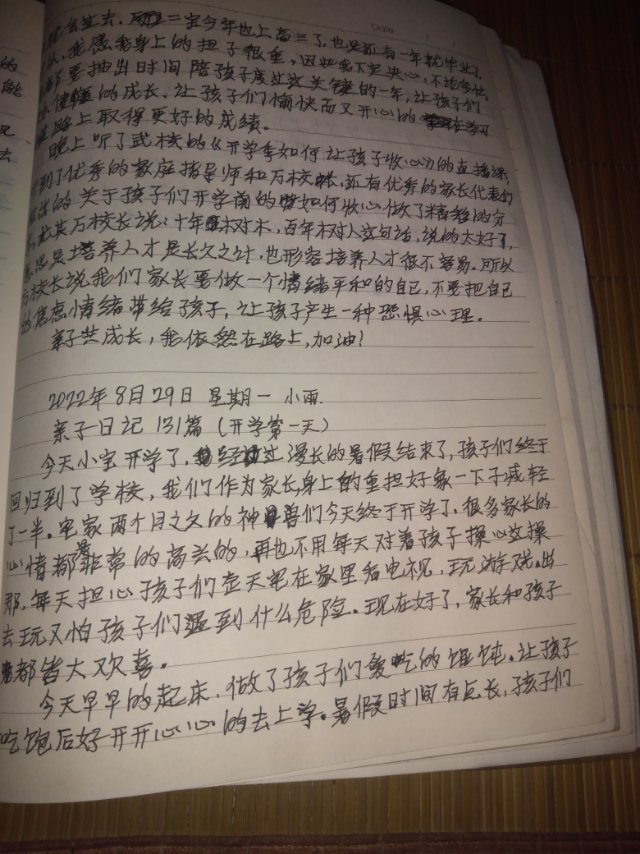 Date
会过去。二宝今年也上高三了,也只有一年就毕业了,
我感我身上的担子很重,因此我下定决心,不论多忙
都要抽出时间陪孩子度过这关键的一年,让孩子们
健康的成长。让孩子们愉快而又开心的在学习
路上取得更好的成绩。
晚上听了武校的《开学季如何让孩子收心》的直播课,
到了优秀的家庭指导师和万校长,还有优秀的家长代表的
的关于孩子们开学前的如何收心做了精细的分
尤其万校长说:十年树木,百年树人这句话,说的太好了,
意思是培养人才是长久之计,也形容培养人才很不容易。所以
万校长说我们家长要做一个情绪平和的自己,不要把自己
的焦虑情绪带给孩子,让孩子产生一种恐惧心理。
亲子共成长,我依然在路上,加油!
2022年8月29日 星期一 小雨
亲子日记 131篇(开学第一天)
今天小宝开学了,经过漫长的暑假结束了,孩子们终于
回归到了学校,我们作为家长身上的重担好象一下子减轻
了一半。宅家两个月之久的神兽们今天终于开学了,很多家长的
心情都是非常的高兴的,再也不用每天对着孩子操心这操心
那,每天担心孩子们整天宅在家里看电视,玩游戏。出
去玩又怕孩子们遇到什么危险。现在好了,家长和孩子
都皆大欢喜。
今天早早的起床,做了孩子们爱吃的馄饨。让孩子
吃饱后好开开心心的去上学。暑假时间有点长,孩子们